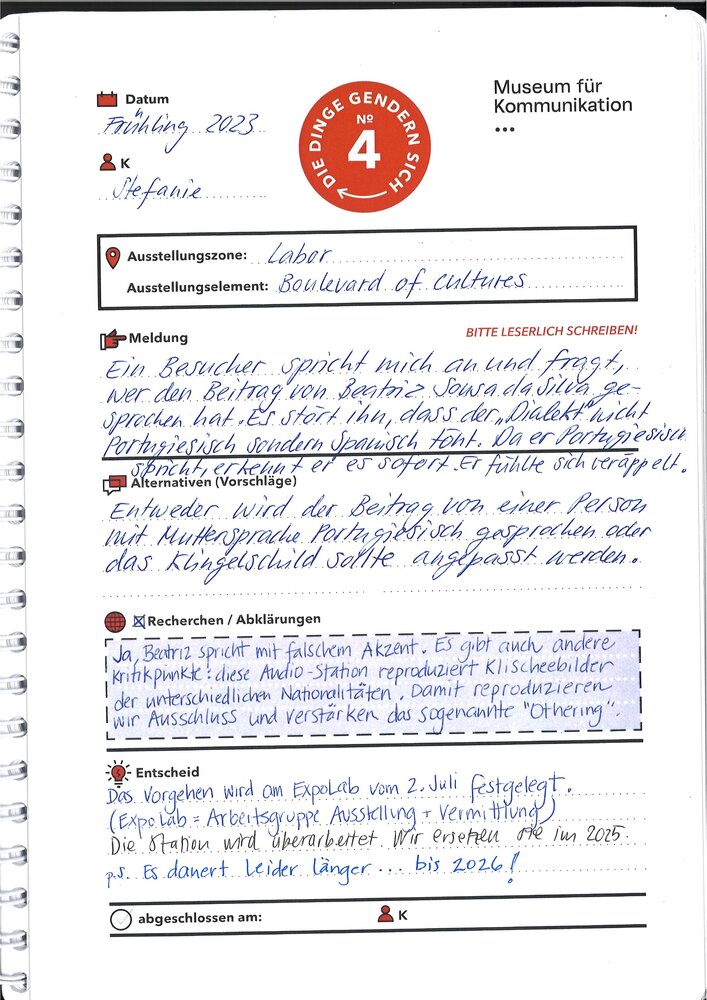 Datum
Frühling 2023
K
Stefanie
DIE DINGE GENDERN SICH
Nº
4
Museum für
Kommunikation
Ausstellungszone: Labor
Ausstellungselement: Boulevard of Cultures
Meldung
BITTE LESERLICH SCHREIBEN!
Ein Besucher spricht mich an und fragt,
wer den Beitrag von Beatriz Sousa da Silva ge-
sprochen hat. Es stört ihn, dass der „Dialekt" nicht
Portugiesisch sondern Spanisch tönt. Da er Portugiesisch
spricht, erkennt er es sofort. Er fühlte sich veräppelt.
Alternativen (Vorschläge)
Entweder wird der Beitrag von einer Person
mit Muttersprache Portugiesisch gesprochen oder
das Klingelschild sollte angepasst werden.
Recherchen / Abklärungen
Ja, Beatriz spricht mit falschem Akzent. Es gibt auch andere
Kritikpunkte: diese Audio-Station reproduziert Klischeebilder
der unterschiedlichen Nationalitäten. Damit reproduzieren
wir Ausschluss und verstärken das sogenannte "Othering".
Entscheid
Das Vorgehen wird am ExpoLab vom 2. Juli festgelegt.
(ExpoLab = Arbeitsgruppe Ausstellung + Vermittlung)
Die Station wird überarbeitet. Wir ersetzen sie im 2025.
p.s. Es dauert leider länger ... bis 2026!
abgeschlossen am:
K